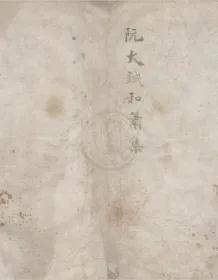 阮大鋮和蕭集